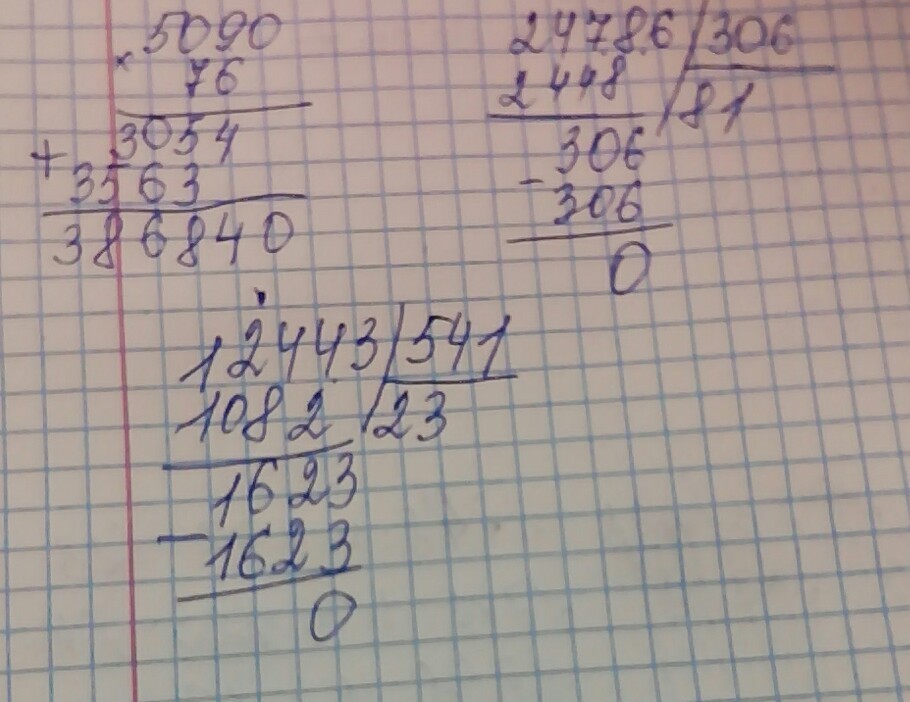 × 5090
76
3054
+ 3563
386840
24786 | 306
2448 | 81
306
- 306
0
12443 | 541
1082 | 23
1623
- 1623
0